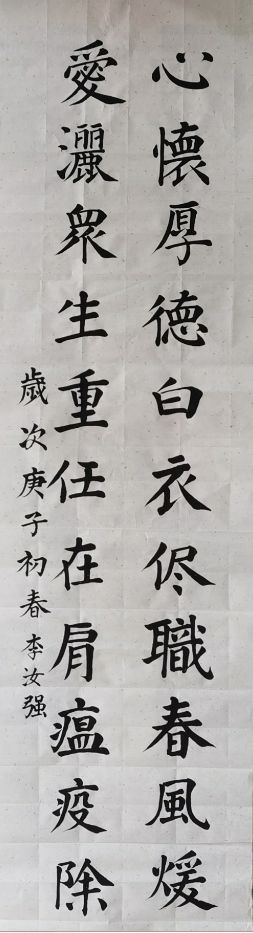 心懷厚德白衣侭職春風煖
愛灑眾生重任在肩瘟疫除
歲次庚子初春李汝强